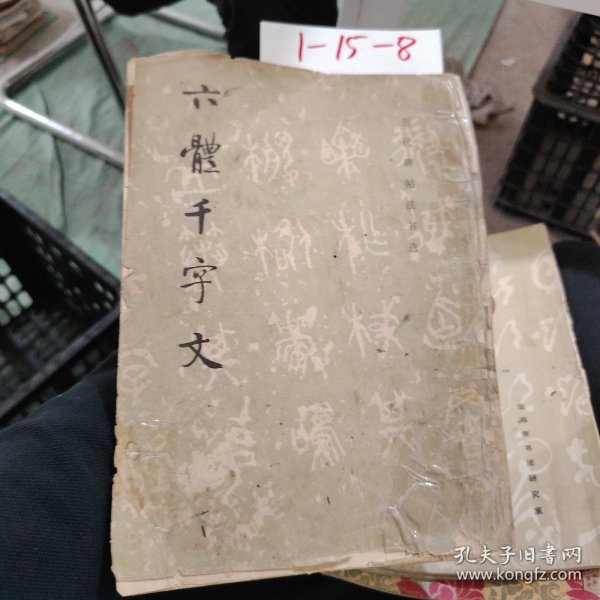 1-15-8
六體千字文
历代碑帖法书选
市书法研究室
孔夫子旧书网
www.kongfz.com